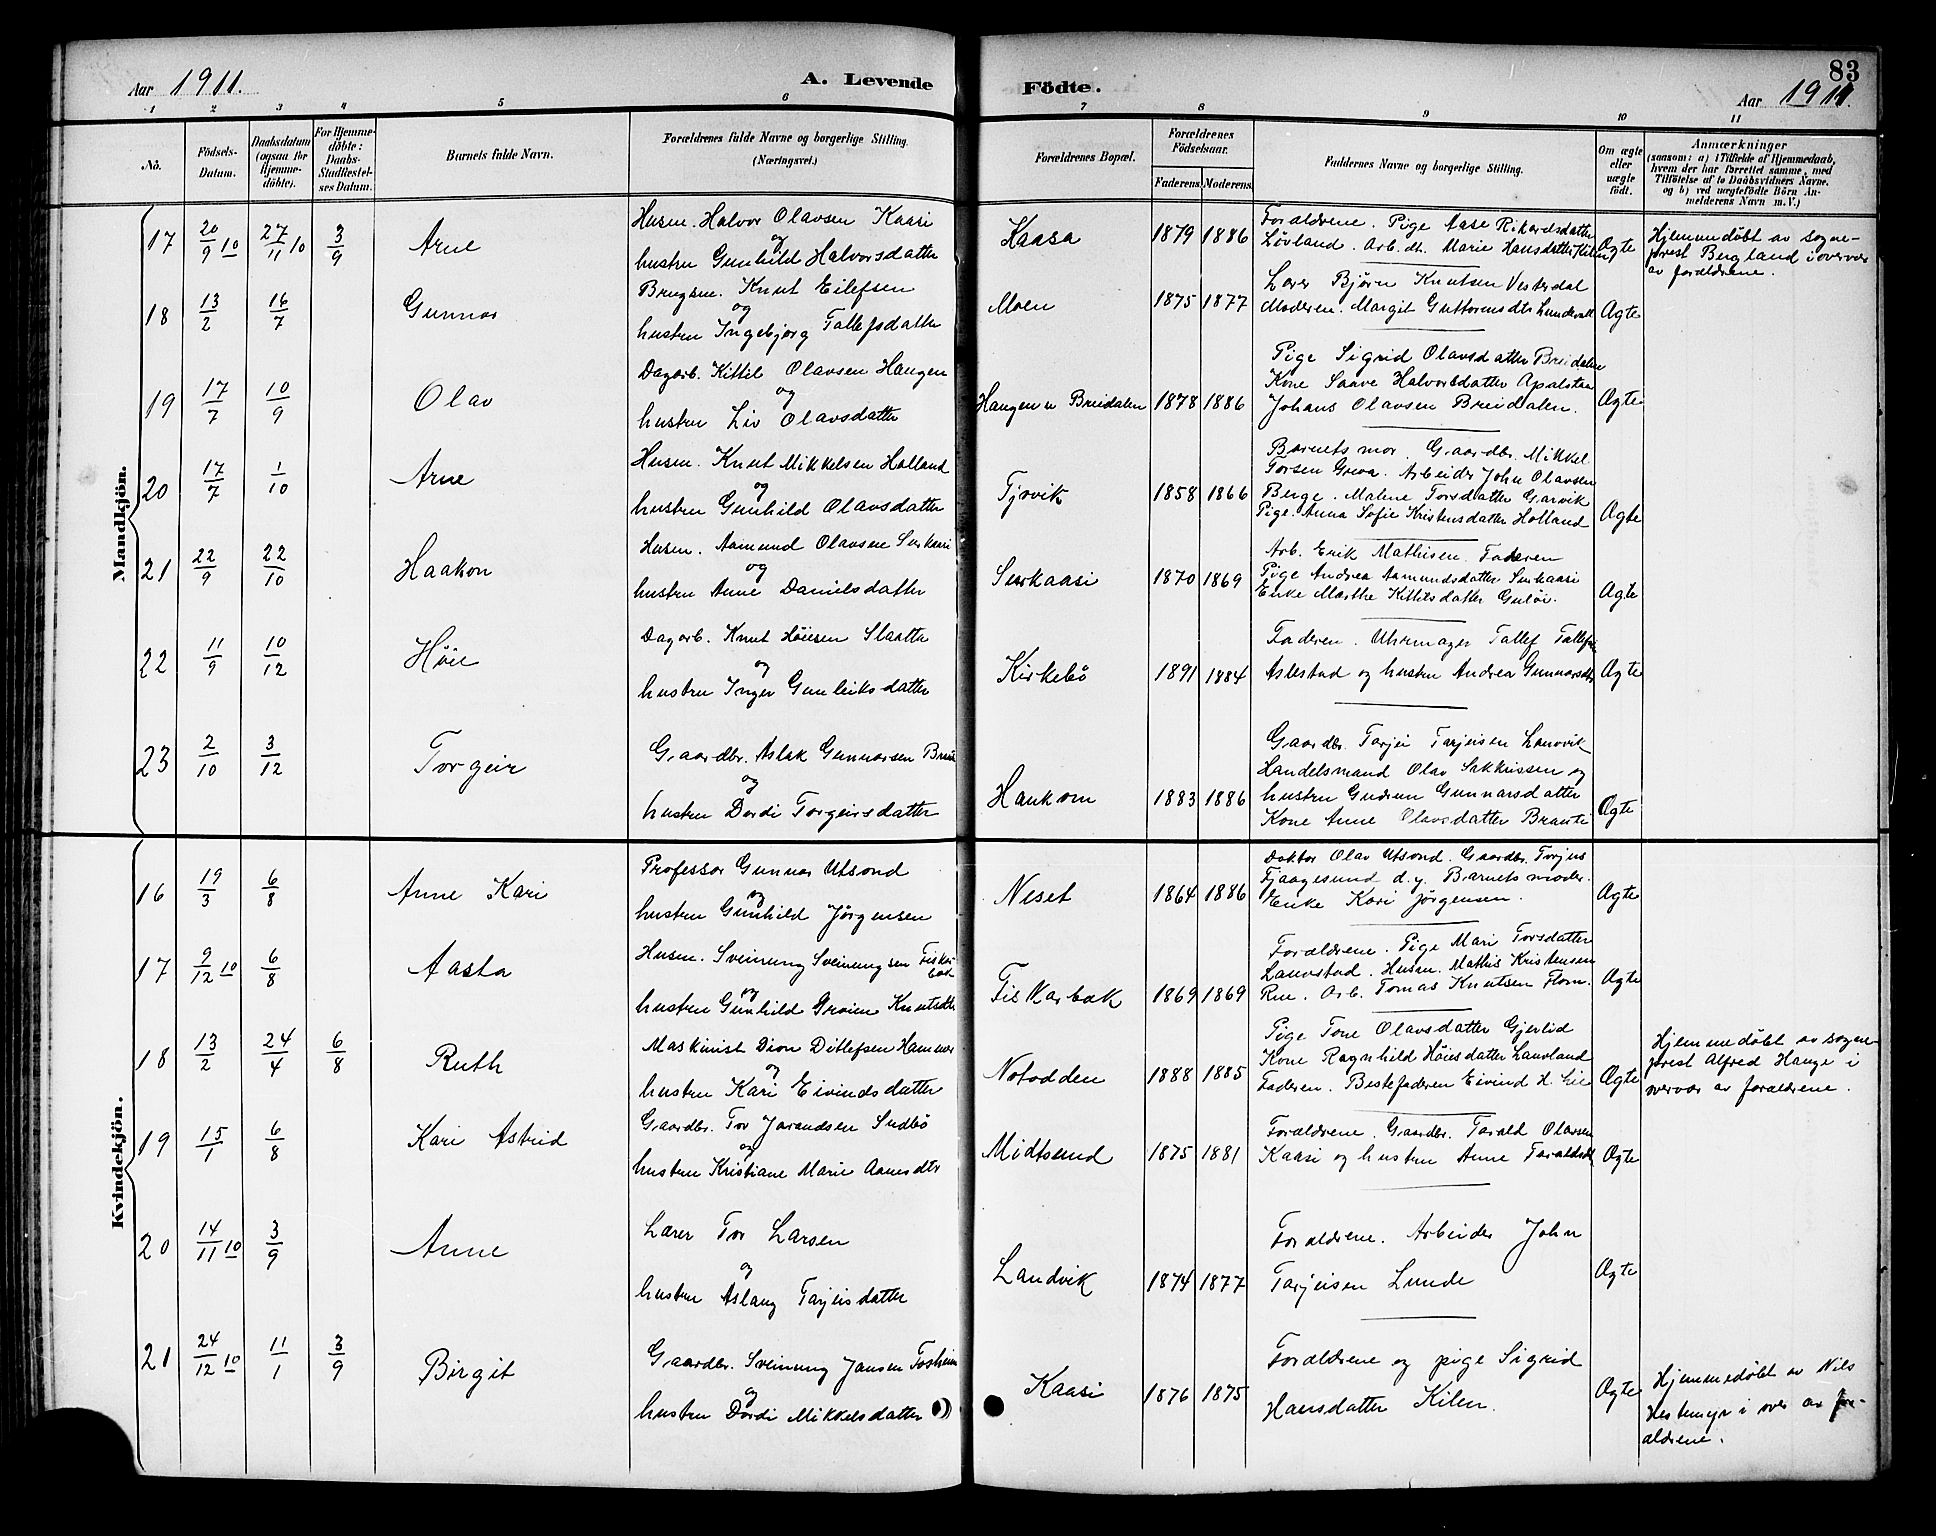 83
Aar 1911.
A. Levende
Födte.
Aar 1911.
1 2 3 4 5 6 7 8 9 10 11
No.
Födsels-Datum.
Daabsdatum (ogsaa for Hjemme-döbte).
For Hjemme-döbte: Daabs-Stadfæstel-ses Datum.
Barnets fulde Navn.
Forældrenes fulde Navne og borgerlige Stilling.
(Næringsvei.)
Forældrenes Bopæl.
Forældrenes Födselsaar.
Faderens. Moderens.
Faddernes Navne og borgerlige Stilling.
Om ægte eller uægte födt.
Anmærkninger
(saasom: a) i Tilfælde af Hjemmedaab, hvem der har forrettet samme, med Tilföielse af to Daabsvidners Navne, og b) ved uægtefödte Börn An-melderens Navn m. V.)
Mandkjön.
17 20/9 10 27/11 10 3/9 Arne
Husm. Halvor Olavsen Kaasi
og
hustru Gunhild Halvorsdatter
Kaasa 1879 1886
Forældrene. Pige Aase Rikardsdatter
Løvland. Arb.dt. Marie Hansdatter Kilen
Ægte
Hjemmedøbt av sogne-
prest Bergland i overvær
av forældrene.
18 13/2 16/7 Gunnar
Brugsm. Knut Eilefsen
og
hustru Ingebjørg Tallefsdatter
Moen 1875 1877
Lærer Bjørn Knutsen Vesterdal
Moderen. Margit Guttormsdtr Lundevall
Ægte
19 17/7 10/9 Olav
Dagarb. Kittil Olavsen Haugen
og
hustru Liv Olavsdatter
Haugen u Breidalen 1878 1886
Pige Sigrid Olavsdatter Breidalen
Kone Saave Halvorsdatter Apalstaa
Johans Olavsen Breidalen.
Ægte
20 17/7 1/10 Arne
Husm. Knut Mikkelsen Holland
og
hustru Gunhild Olavsdatter
Tjovik 1858 1866
Barnets mor. Gaardbr. Mikkel
Torsen Greva. Arbeider John Olavsen
Berge. Malene Torsdatter Garvik
Pige. Anna Sofie Kristensdatter Holland
Ægte
21 22/9 22/10 Haakon
Husm. Aamund Olavsen Surkaasi
og
hustru Anne Danielsdatter
Surkaasi 1870 1869
Arb. Erik Mathisen. Faderen
Pige Andrea Aamundsdatter Surkaasi
Enke Marthe Kittilsdatter Guløi.
Ægte
22 11/9 10/12 Høie
Dagarb. Knut Høiesen Slaatta
og
hustru Inger Gunleiksdatter
Kirkebö 1891 1884
Faderen. Uhrmager Tallef Tallefsen
Aslestad og hustru Andrea Gunnarsdtr
Ægte
23 2/10 3/12 Torgeir
Gaardbr. Aslak Gunnarsen Brauti
og
hustru Dordi Torgeirsdatter
Haukom 1883 1886
Gaardbr. Tarjei Tarjeisen Lanvvik
Handelsmand Olav Sakkrissen og
hustru Gudrun Gunnarsdatter
Kone Anne Olavsdatter Brauti
Ægte
Kvindekjön.
16 19/3 6/8 Anne Kari
Professor Gunnar Utsond
og
hustru Gunhild Jørgensen
Neset 1864 1886
Doktor Olav Utsond. Gaardbr. Torjus
Fjaagesund d.y. Barnets moder.
Enke Kari Jørgensen.
Ægte
17 9/12 10 6/8 Aasta
Husm. Sveinung Sveinungsen Fiskar
bæk
og
hustru Gunhild Groien Knutsdtr
Fiskarbæk 1869 1869
Forældrene. Pige Mari Torsdatter
Laurstad. Husm. Mathis Kristensen
Rue. Arb. Tomas Knutsen Flom.
Ægte
18 13/2 24/4 6/8 Ruth
Maskinist Dion Ditlefsen Hammer
og
hustru Kari Eivindsdatter
Notodden 1888 1885
Pige Tone Olavsdatter Gjerlid
Kone Ragnhild Høiesdatter Lanvland
Faderen. Bestefaderen Eivind H. Lie
Ægte
Hjemmedøbt av sogne-
prest Alfred Hauge i
overvær av forældrene.
19 15/1 6/8 Kari Astrid
Gaardbr. Tor Jorandsen Sudbø
og
hustru Kristiane Marie Aamsdtr
Midtsund 1875 1881
Forældrene. Gaardbr. Tarald Olavsen
Kaasi og hustru Anne Taraldsdtr
Ægte
20 14/11 10 3/9 Anne
Lærer Tor Larsen
og
hustru Aslaug Tarjeisdatter
Landvik 1874 1877
Forældrene. Arbeider John
Tarjeisen Lunde
Ægte
21 24/12 10 11/1 3/9 Birgit
Gaardbr. Sveinung Jansen Toskeim
og
hustru Dordi Mikkelsdatter
Kaasi 1876 1875
Forældrene og pige Sigrid
Hansdatter Kilen.
Ægte
Hjemmedøbt av Nils
Hestemyr i over av for-
ældrene.